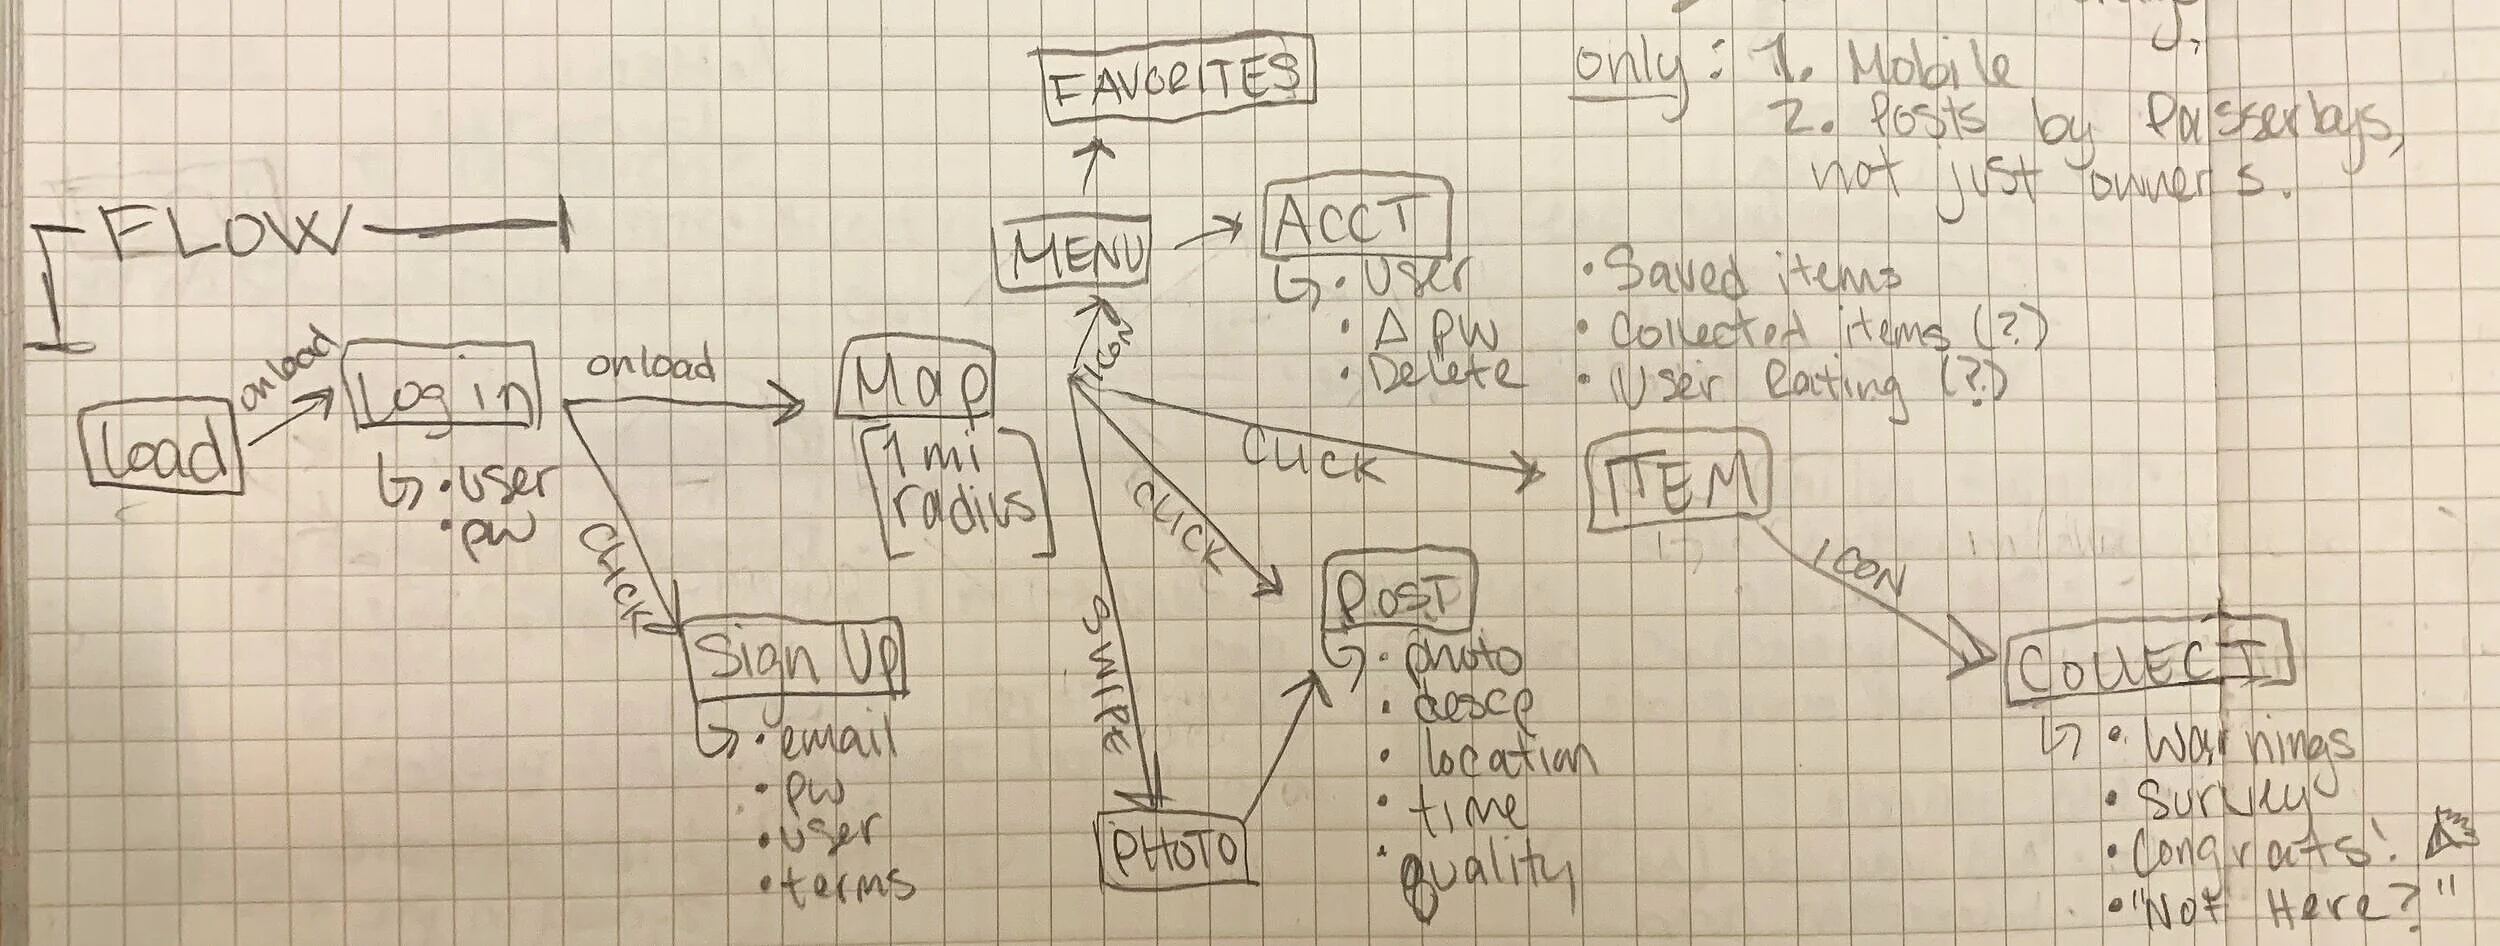 only: 1. Mobile
2. Posts by Passerbys,
not just owners.
FAVORITES
FLOW
MENU
ACCT
• User
• Δ PW
• Delete
• Saved items
• Collected items (?)
• User Rating (?)
Load
onload
Log in
• user
• pw
onload
CLICK
Sign Up
• email
• pw
• user
• terms
Map
[1 mi
radius]
ICON
CLICK
ITEM
CLICK
POST
• photo
• descp
• location
• time
• quality
SWIPE
PHOTO
ICON
COLLECT
• Warnings
• Survey
• Congrats!
• "Not Here?"